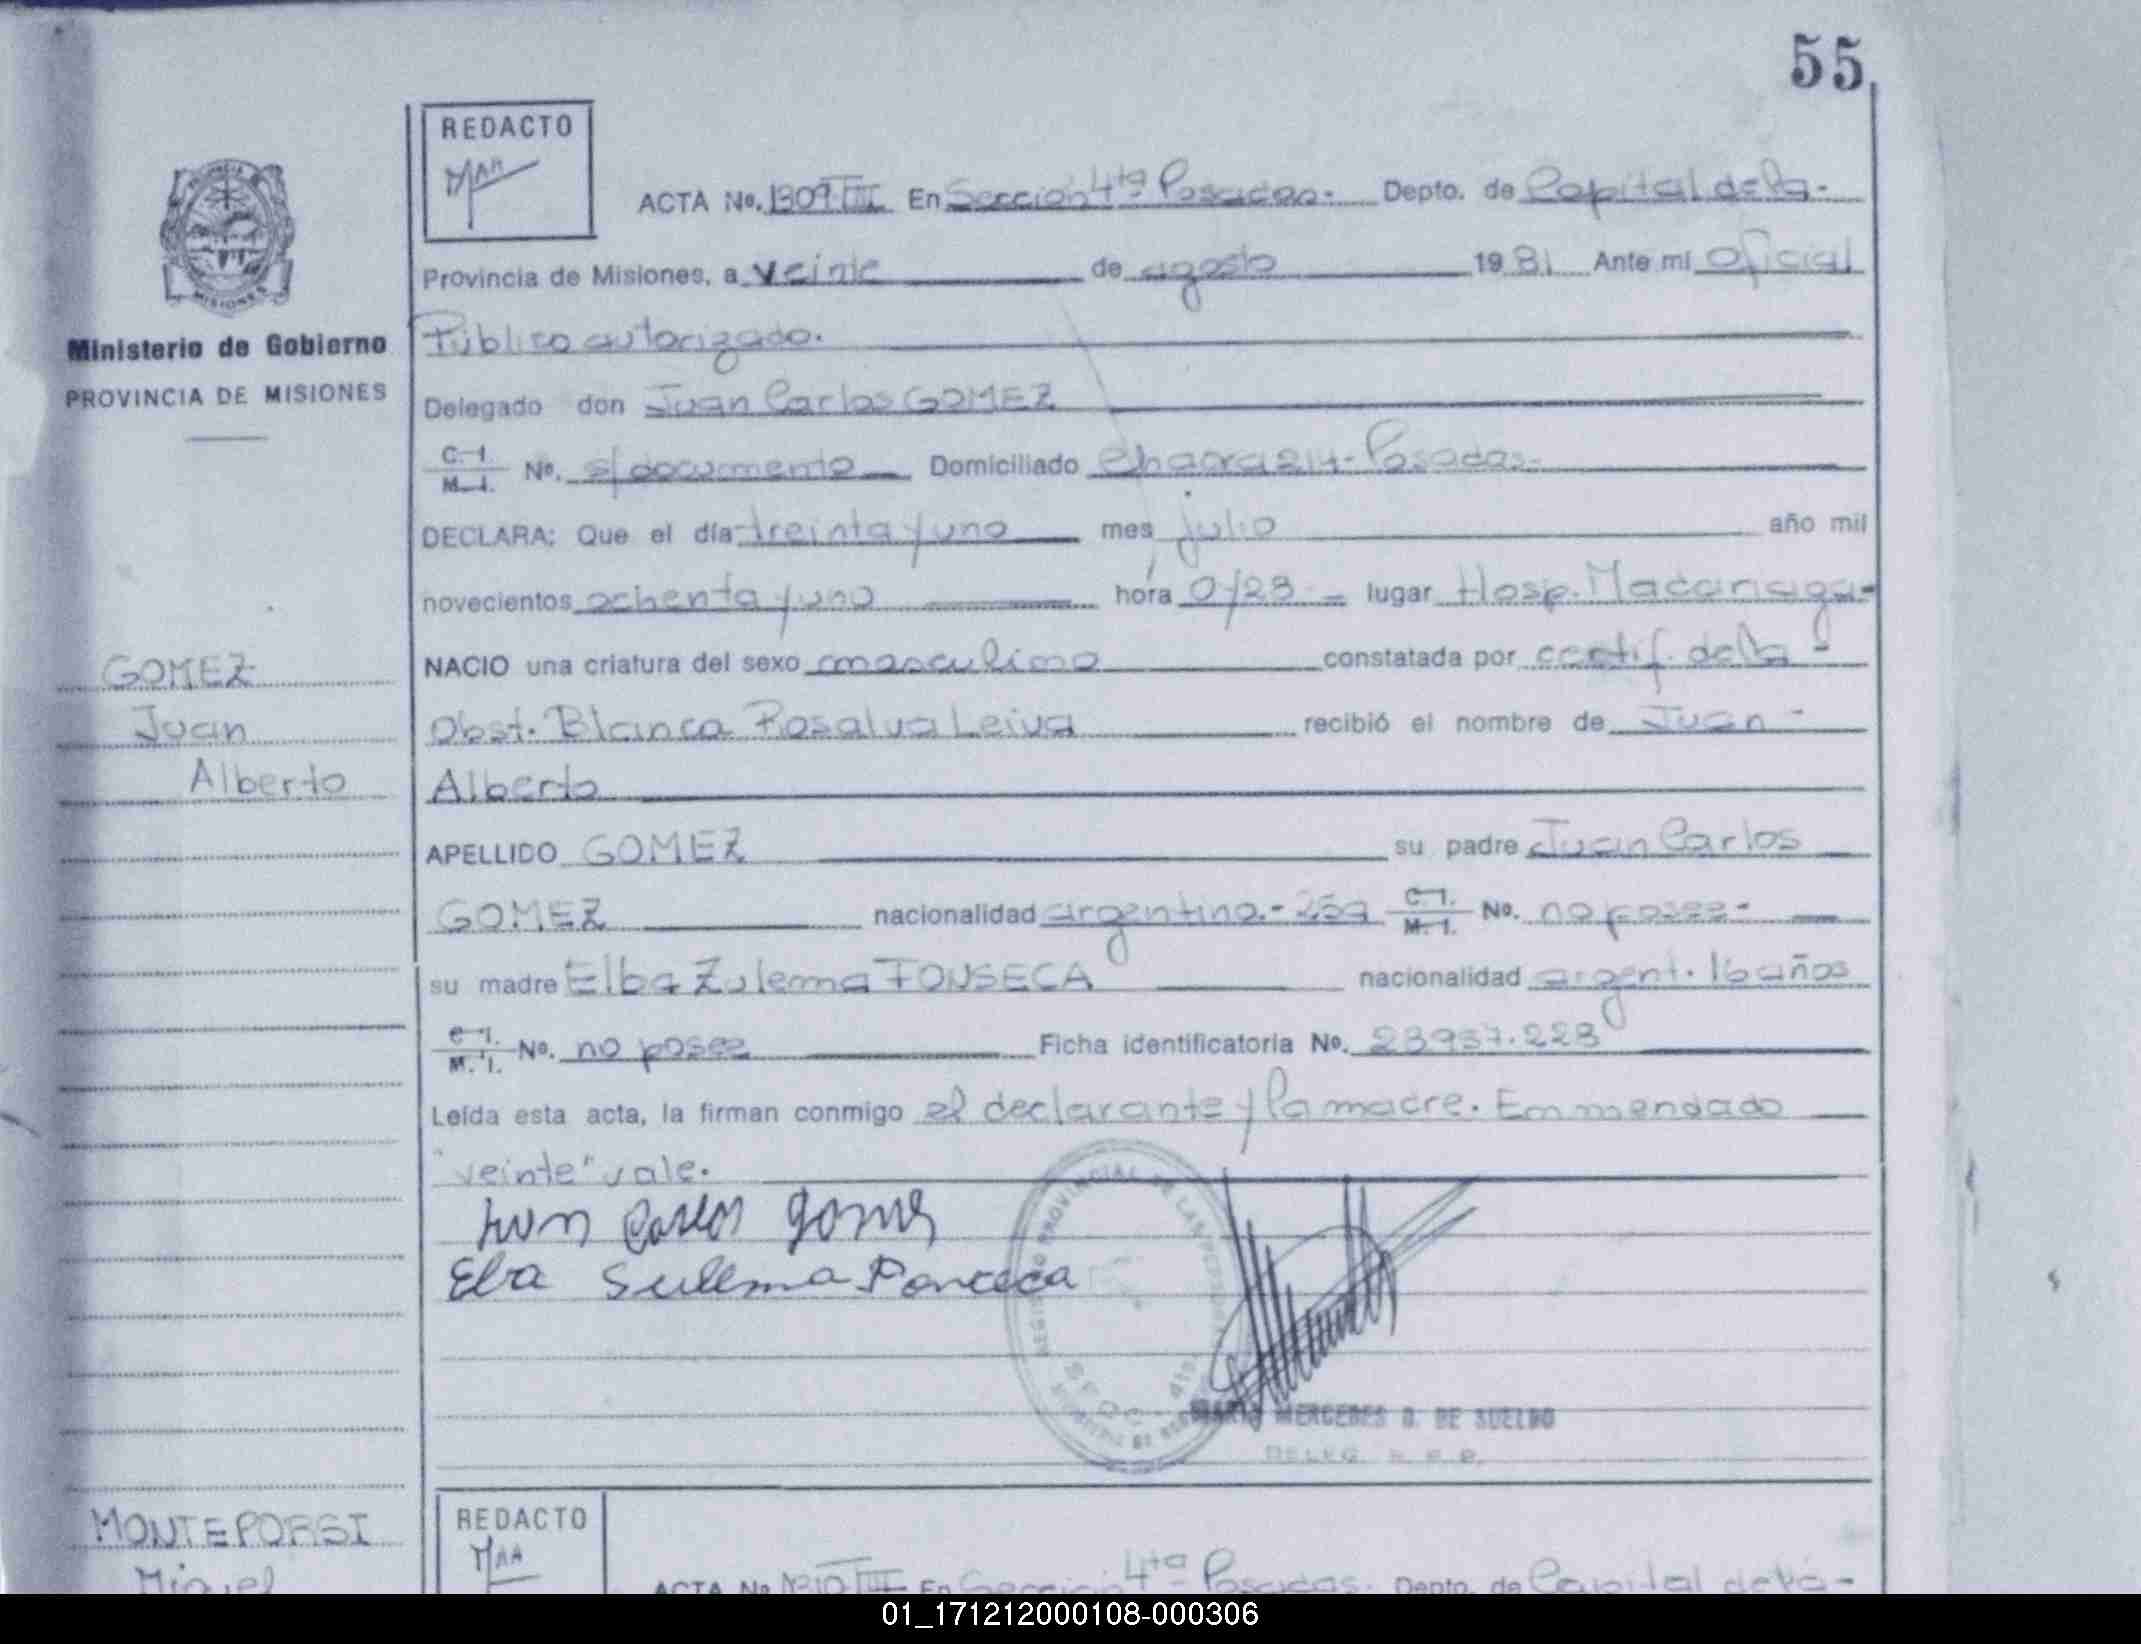 55
REDACTO
ACTA No. 1309 III En Sección 4ta Posadas.- Depto. de Capital de la-
Provincia de Misiones, a veinte de agosto 1981 Ante mi Oficial
Público autorizado.
Ministerio de Gobierno
PROVINCIA DE MISIONES
Delegado don Juan Carlos GOMEZ
C.I. M.I. No. s/documento Domiciliado Chacra 214- Posadas-
DECLARA: Que el día treinta y uno mes julio año mil
novecientos ochenta y uno hora 0/23 lugar Hosp. Madariaga-
NACIO una criatura del sexo masculino constatada por certif. de la
GOMEZ
Juan
Alberto
Obst. Blanca Rosalva Leiva recibió el nombre de Juan-
Alberto
APELLIDO GOMEZ su padre Juan Carlos
GOMEZ nacionalidad argentina.- 25a C.I. M.I. No. no posee-
su madre Elba Zulema FONSECA nacionalidad argent. 16 años
C.I. M.I. No. no posee Ficha identificatoria No. 28937.228
Leída esta acta, la firman conmigo el declarante y la madre. Enmendado
"veinte" vale.
Juan Carlos Gomez
Elba Sulema Fonceca
REGISTRO PROVINCIAL DE LAS PERSONAS
MERCEDES D. DE SUELDO
DELEG.
MONTEPORSI
Miguel
REDACTO
ACTA No 1310 III En Sección 4ta Posadas. Depto. de Capital de la-
01_171212000108-000306